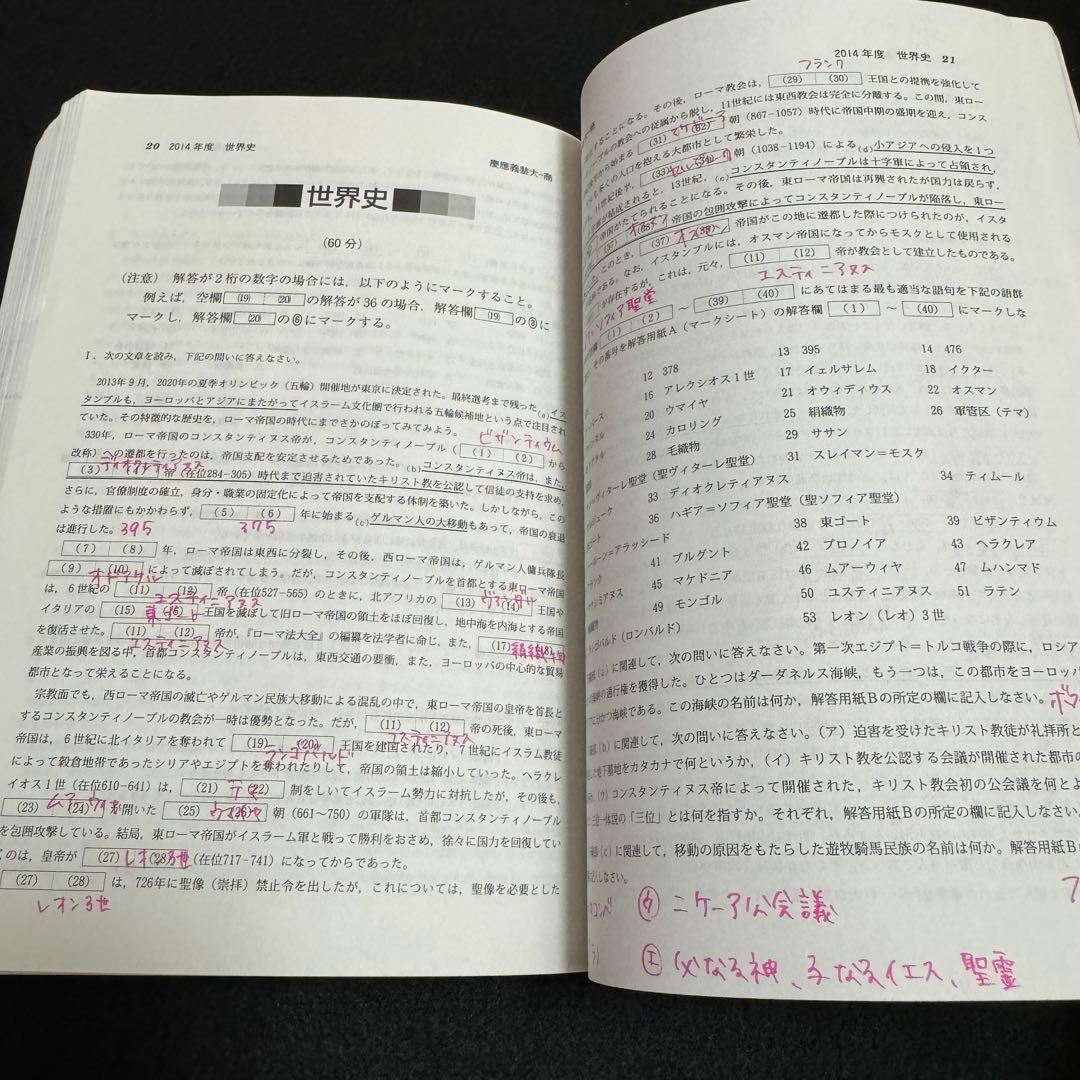 20 2014年度 世界史
慶應義塾大-商
世界史
(60分)
(注意) 解答が2桁の数字の場合には,以下のようにマークすること。
例えば,空欄 (19) (20) の解答が36の場合,解答欄 (19) の③に
マークし,解答欄 (20) の⑥にマークする。
I. 次の文章を読み,下記の問いに答えなさい。
2013年9月,2020年の夏季オリンピック(五輪)開催地が東京に決定された。最終選考まで残った(a)イス
タンブルも,ヨーロッパとアジアにまたがってイスラーム文化圏で行われる五輪候補地という点で注目され
ていた。その特徴的な歴史を,ローマ帝国の時代にまでさかのぼってみてみよう。
ビザンティウム
330年,ローマ帝国のコンスタンティヌス帝が,コンスタンティノープル( (1) (2) から
改称)への遷都を行ったのは,帝国支配を安定させるためであった。(b)コンスタンティヌス帝は,また,
(3) 帝(在位284-305)時代まで迫害されていたキリスト教を公認して信徒の支持を求め,
さらに,官僚制度の確立,身分・職業の固定化によって帝国を支配する体制を築いた。しかしながら,この
ような措置にもかかわらず, (5) (6) 年に始まる(c)ゲルマン人の大移動もあって,帝国の衰退
は進行した。395 375
(7) (8) 年,ローマ帝国は東西に分裂し,その後,西ローマ帝国は,ゲルマン人傭兵隊長
(9) (10) によって滅ぼされてしまう。だが,コンスタンティノープルを首都とする東ローマ帝国
オドアケル
は,6世紀の (11) (12) 帝(在位527-565)のときに,北アフリカの (13) (14) 王国や
ユスティニアヌス
イタリアの (15) (16) 王国を滅ぼして旧ローマ帝国の領土をほぼ回復し,地中海を内海とする帝国
を復活させた。 (11) (12) 帝が,『ローマ法大全』の編纂を法学者に命じ,また, (17) (18)
ユスティニアヌス
産業の振興を図る中,首都コンスタンティノープルは,東西交通の要衝,また,ヨーロッパの中心的な貿易
都市となって栄えることになる。
宗教面でも,西ローマ帝国の滅亡やゲルマン民族大移動による混乱の中で,東ローマ帝国の皇帝を首長と
するコンスタンティノープルの教会が一時は優勢となった。だが, (11) (12) 帝の死後,東ローマ
帝国は,6世紀に北イタリアを奪われて (19) (20) 王国を建国されたり,7世紀にイスラム教徒
ランゴバルド
によって穀倉地帯であったシリアやエジプトを奪われたりして,帝国の領土は縮小していった。ヘラクレ
イオス1世(在位610-641)は, (21) (22) 制をしいてイスラーム勢力に対抗したが,その後も,
(23) (24) が開いた (25) (26) 朝(661~750)の軍隊は,首都コンスタンティノープル
を包囲攻撃している。結局,東ローマ帝国がイスラーム軍と戦って勝利をおさめ,徐々に国力を回復してい
くのは,皇帝が (27) (28) (在位717-741)になってからであった。
(27) (28) は,726年に聖像(崇拝)禁止令を出したが,これについては,聖像を必要とした
レオン3世
2014年度 世界史 21
フランク
することになる。その後,ローマ教会は, (29) (30) 王国との提携を強化して
プルの教会への従属から脱し,11世紀には東西教会は完全に分離する。この間,東ロー
から始まる (31) (32) 朝(867-1057)時代に帝国中期の盛期を迎え,コンス
も多くの人口を抱える大都市として繁栄した。
11世紀後半, (33) 朝(1038-1194)による(d)小アジアへの侵入を1つ
が結成されると,13世紀,(e)コンスタンティノープルは十字軍によって占領され,
帝国がたてられることになる。その後,東ローマ帝国は再興されたが国力は戻らず,
(37) 帝国の包囲攻撃によってコンスタンティノープルが陥落し,東ロー
このとき, (37) (38) 帝国がこの地に遷都した際につけられたのが,イスタ
ある。なお,イスタンブルには,オスマン帝国になってからモスクとして使用される
が存在するが,これは,元々, (11) (12) 帝が教会として建立したものである。
ユスティニアヌス
ソフィア聖堂
(1) (2) ~ (39) (40) にあてはまる最も適当な語句を下記の語群
その番号を解答用紙A(マークシート)の解答欄 (1) ~ (40) にマークしな
12 378 13 395 14 476
16 アレクシオス1世 17 イェルサレム 18 イクター
20 ウマイヤ 21 オウィディウス 22 オスマン
24 カロリング 25 絹織物 26 軍管区(テマ)
28 毛織物 29 ササン
ヴィターレ聖堂(聖ヴィターレ聖堂) 31 スレイマン=モスク
33 ディオクレティアヌス 34 ティムール
36 ハギア=ソフィア聖堂(聖ソフィア聖堂)
38 東ゴート 39 ビザンティウム
ルーン=アラッシード
41 ブルグント 42 プロノイア 43 ヘラクレア
45 マケドニア 46 ムアーウィヤ 47 ムハンマド
49 モンゴル 50 ユスティニアヌス 51 ラテン
ゴバルド(ロンバルド) 53 レオン(レオ)3世
(a)に関連して,次の問いに答えなさい。第一次エジプト=トルコ戦争の際に,ロシア
海峡の通行権を獲得した。ひとつはダーダネルス海峡,もう一つは,この都市をヨーロッパ
に分かつ海峡である。この海峡の名前は何か,解答用紙Bの所定の欄に記入しなさい。
(b)に関連して,次の問いに答えなさい。(ア)迫害を受けたキリスト教徒が礼拝所と
した地下墓地をカタカナで何というか,(イ)キリスト教を公認する会議が開催された都市の
(ウ)コンスタンティヌス帝によって開催された,キリスト教会初の公会議を何とよ
三位一体説の「三位」とは何を指すか。それぞれ,解答用紙Bの所定の欄に記入しなさい。
(c)に関連して,移動の原因をもたらした遊牧騎馬民族の名前は何か。解答用紙Bの
記入しなさい。
ウ ニケーア公会議
エ 父なる神、子なるイエス、聖霊